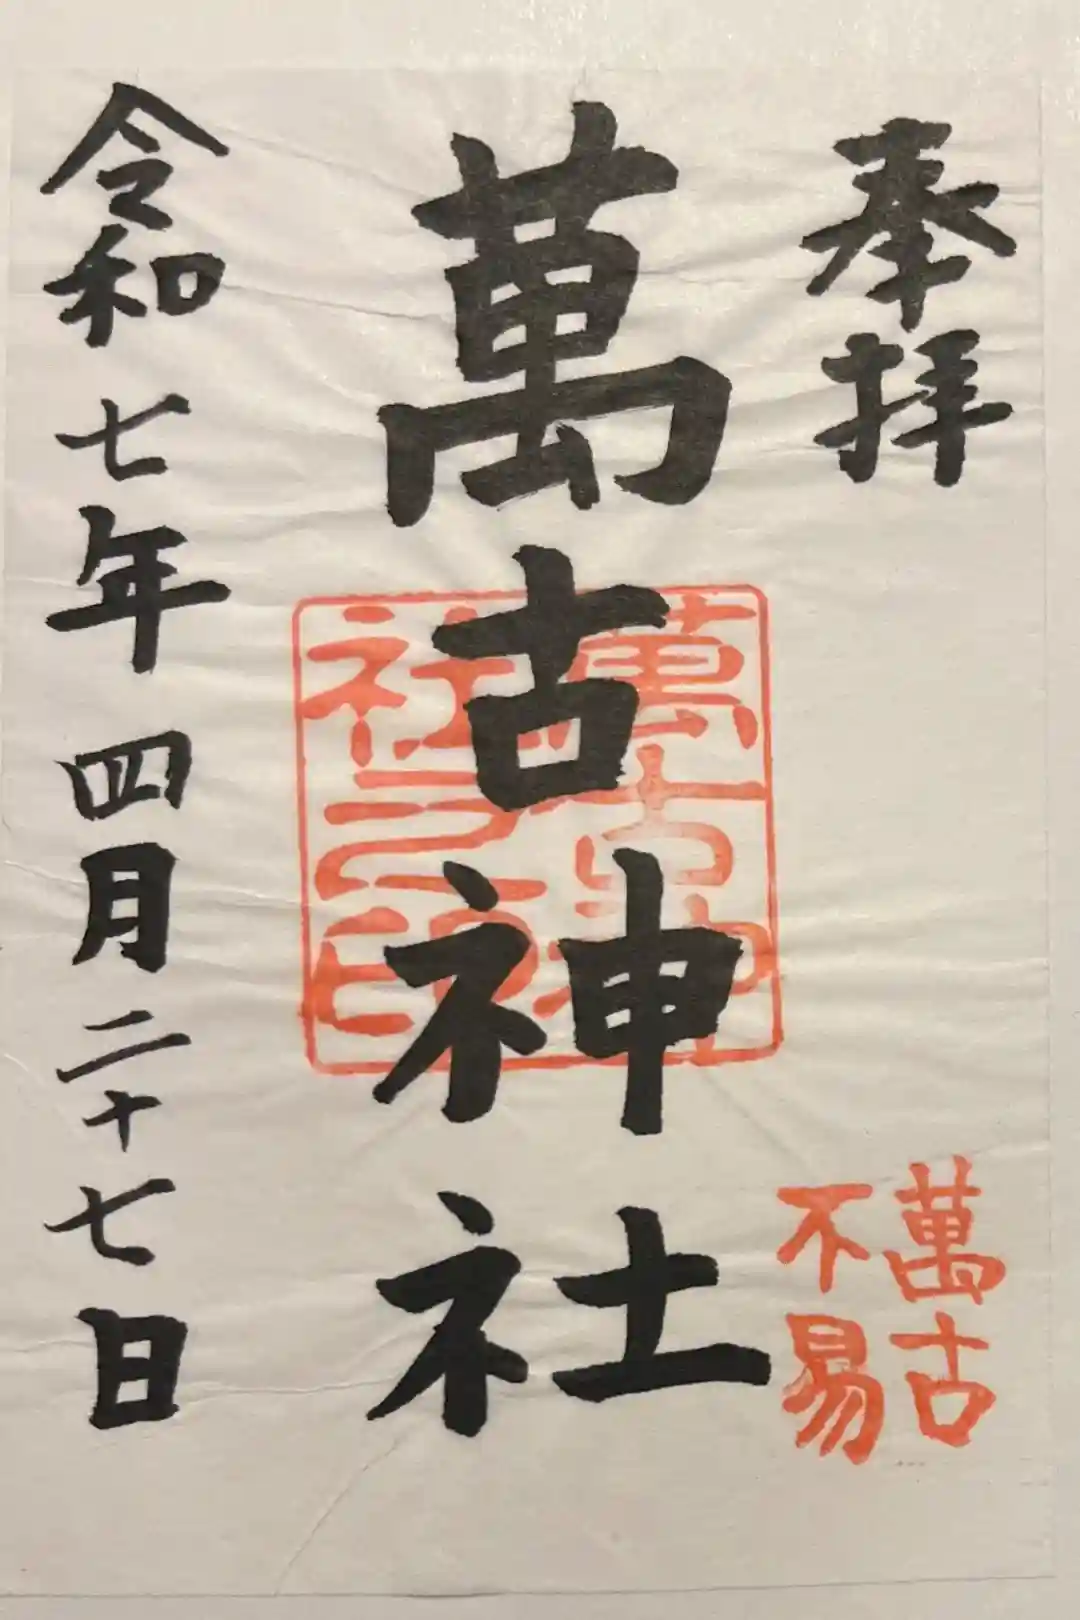 奉拝
萬古神社
萬古神社之印
萬古
不易
令和七年四月二十七日